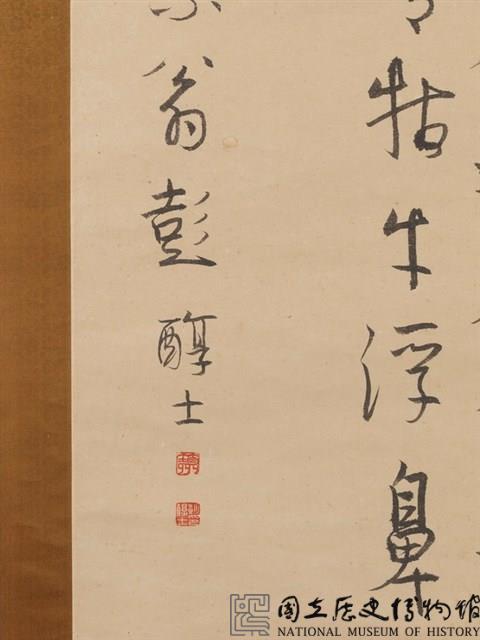 牯牛浮鼻
翁彭醇士
國立歷史博物館
NATIONAL MUSEUM OF HISTORY